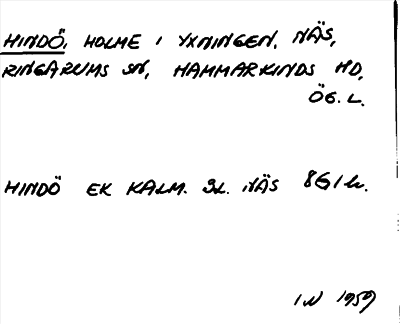 HINDÖ, HOLME I YXNINGEN, NÄS,
RINGARUMS SN, HAMMARKINDS HD,
ÖG. L.
HINDÖ EK KALM. SL. NÄS
IN 1959